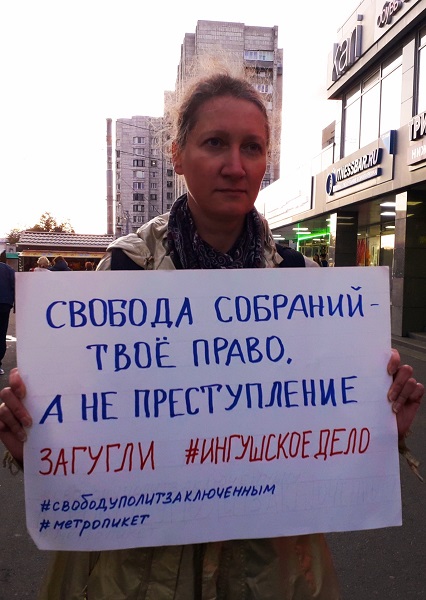 kari
FITNESSBAR.RU
СВОБОДА СОБРАНИЙ -
ТВОЁ ПРАВО,
А НЕ ПРЕСТУПЛЕНИЕ
ЗАГУГЛИ #ИНГУШСКОЕДЕЛО
#СВОБОДУПОЛИТЗАКЛЮЧЕННЫМ
#метропикет